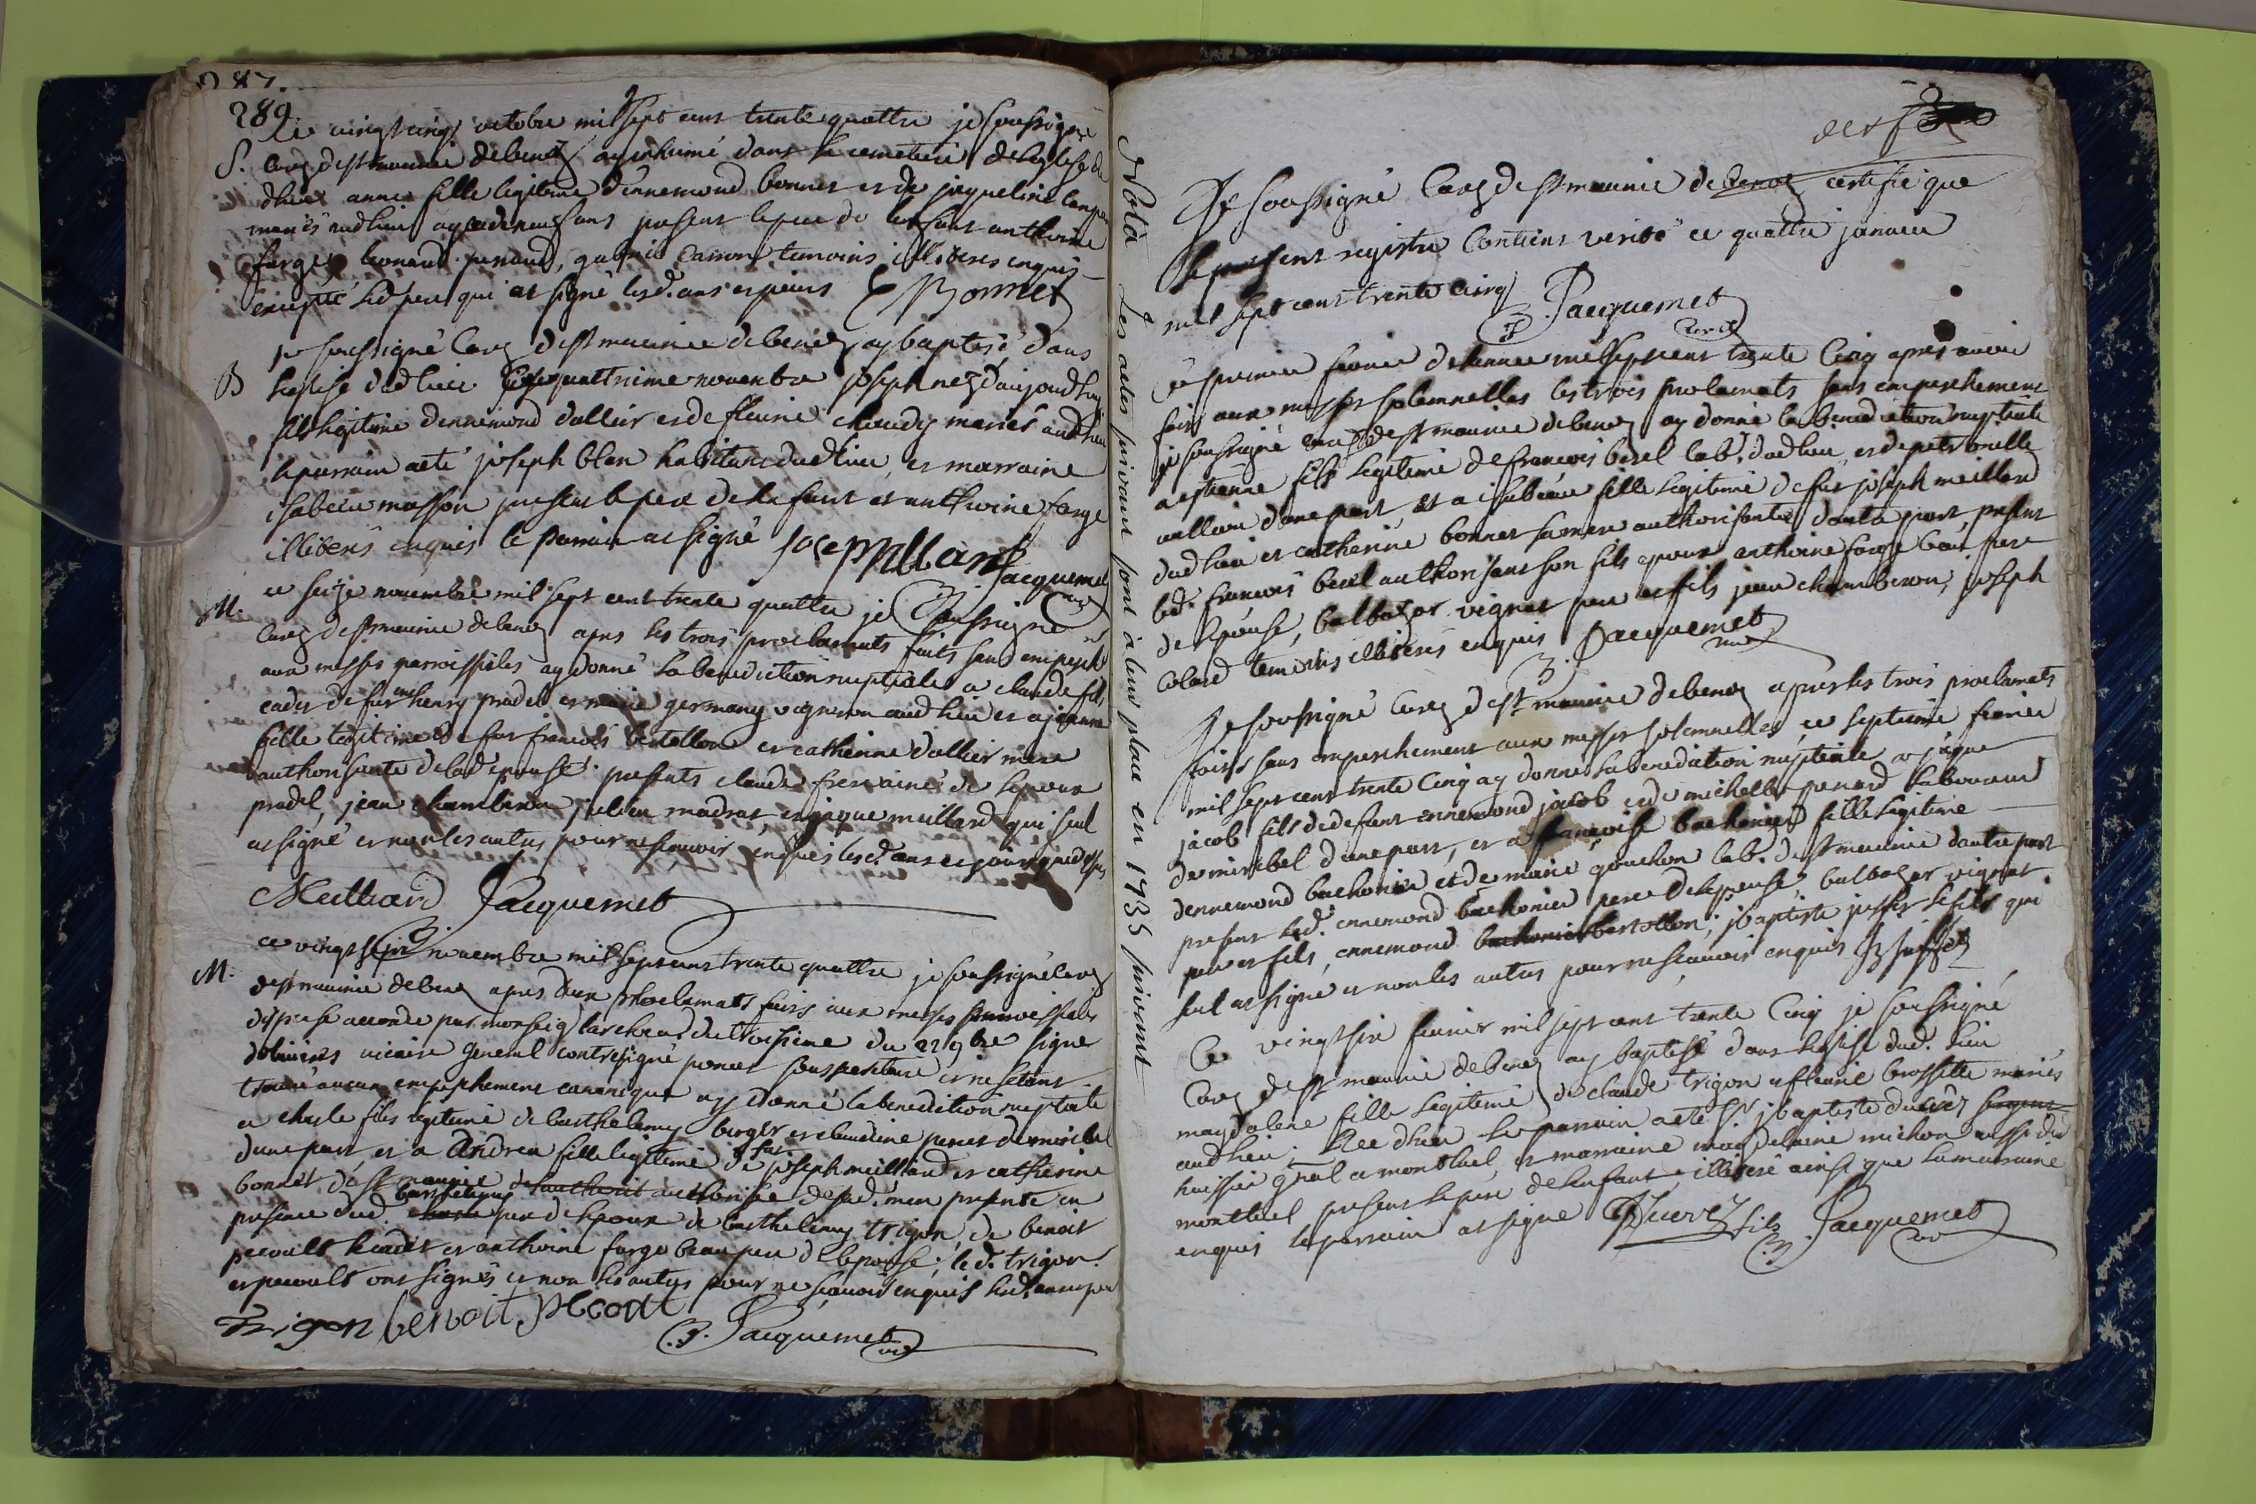 289
ce vingt cinq octobre mil sept cent trente quattre je soussigné
S. Curé de st maurice de benoz ay inhumé dans le cemetiere de leglise du
d lieu anne fille legitime d'ennemond bonnet et de jaqueline
mariés aud lieu agée de neuf ans present le pere de lenfant anthoine
farge, leonard penard, gabriel Carron temoins illiterés enquis
excepté led. pere qui at signé lesd. ans et jours E Bonnet
je soussigné Curé de st maurice de benoz ay baptisé dans
B leglise dud lieu ce quattrieme novembre joseph nez daujourdhuy
fils legitime dennemond dallier et de fleurie chaudy mariés aud lieu
le parrain a eté joseph blan habitant dud lieu et marraine
isabeau masson present le pere de lenfant et anthoine farge
illiterés enquis le parrain at signé joseph blan Jacquemet
M. ce seize novembre mil sept cent trente quattre je soussigné
Curé de st maurice de benoz apres les trois proclamats faits sans empesch
aux messes parroissieles ay donné la benediction nuptiale a claude fils
cadet de feu henry pradel et marie germany vigneron aud lieu et a jeanne
fille legitime de feu francois bertollon et catherine dallier mere
authorisante de lad epouse. presents claude frere ainé de lepoux
pradel, jean chamberon julien madras et jaque meillard qui seul
at signé et non les autres pour ne scavoir enquis lesd. ans et jours que dessus
Meilliard Jacquemet
ce vingt sept novembre mil sept cent trente quattre je soussigné Curé
M. de st maurice de benoz apres deux proclamats faits aux messes parroissiales
dispense accordé par monseig larcheve. du troisieme du 22 9bre signé
dolivieres vicaire general contresigné ponCet souspecretaire et ne sestant
trouvé aucun empeschement canonique ay donné la benediction nuptiale
a charle fils legitime de barthelemy berger et claudine penet de miribel
dune part et a Andrea fille legitime de feu joseph meilliard et catherine
bonnet de st maurice authorisée de sad. mere presente en
presence dud. barthelemy pere de lepoux de barthelemy trigon, de benoit
pecoult le cadet et anthoine farge beau pere de lepouse; led. trigon
et pecoult ont signés et non les autres pour ne scavoir enquis lesd. an et jour
Trigon benoit pecoult
Jacquemet
Nota Les actes suivant sont à leur place en 1735 suivant
Je soussigné Curé de st maurice de benoz certifie que
le present registre Contient verité ce quattre janvier
mil sept cent trente cinq Jacquemet
curé
Ce premier fevrier de lannee mil sept cent trente Cinq apres avoir
fait aux messes solemnelles les trois proclamats sans empeschement
je soussigné curé de st maurice de benoz ay donné la benediction nuptiale
a estienne fils legitime de francois berel lab. dud lieu, et de petronille
vallain dune part et a isabeau fille legitime de feu joseph meillard
dud lieu et catherine bonnet sa mere authorisante dautre part, present
led. francois berel authorisant son fils epoux anthoine farge beau pere
de lepouse, balthazar vignat pere et fils jean chamberon, joseph
Colard temoins illiterés enquis Jacquemet
curé
Je soussigné Curé de st maurice de benoz apres les trois proclamats
faits sans empeschement aux messes solemnelles, ce septieme fevrier
mil sept cent trente Cinq ay donné la benediction nuptiale a jaque
jacob fils de defunt ennemond jacob et de michelle penard laboureur
de miribel dune part, et a francoise bachonier fille legitime
dennemond bachonier et de marie gonchon lab. de st maurice dautre part
present led. ennemond bachonier pere de lepouse, balthazar vignat
pere et fils, ennemond bachonier bertollon; jbaptiste juffet le fils qui
seul at signé et non les autres pour ne scavoir enquis jb juffet
Ce vingt six fevrier mil sept cent trente Cinq je soussigné
Curé de st maurice de benoz ay baptisé dans leglise dud. lieu
magdalene fille legitime de claude trigon et fleurie brossette mariés
aud lieu. Nee dhier le parrain a eté Sr jbaptiste duerez sergent
huissier gral a montluel, et marraine magdelaine michon aussi de
montluel present le pere de lenfant, illiteré ainsi que la marraine
enquis le parrain at signé Duerez fils Jacquemet